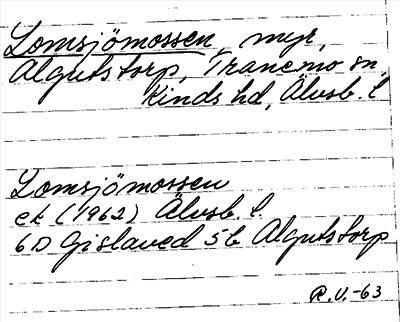 Lomsjömossen, myr,
Algutstorp, Tranemo sn,
Kinds hd, Älvsb. l
Lomsjömossen
ek (1962) Älvsb. l.
6D Gislaved 5b Algutstorp
R.V.-63